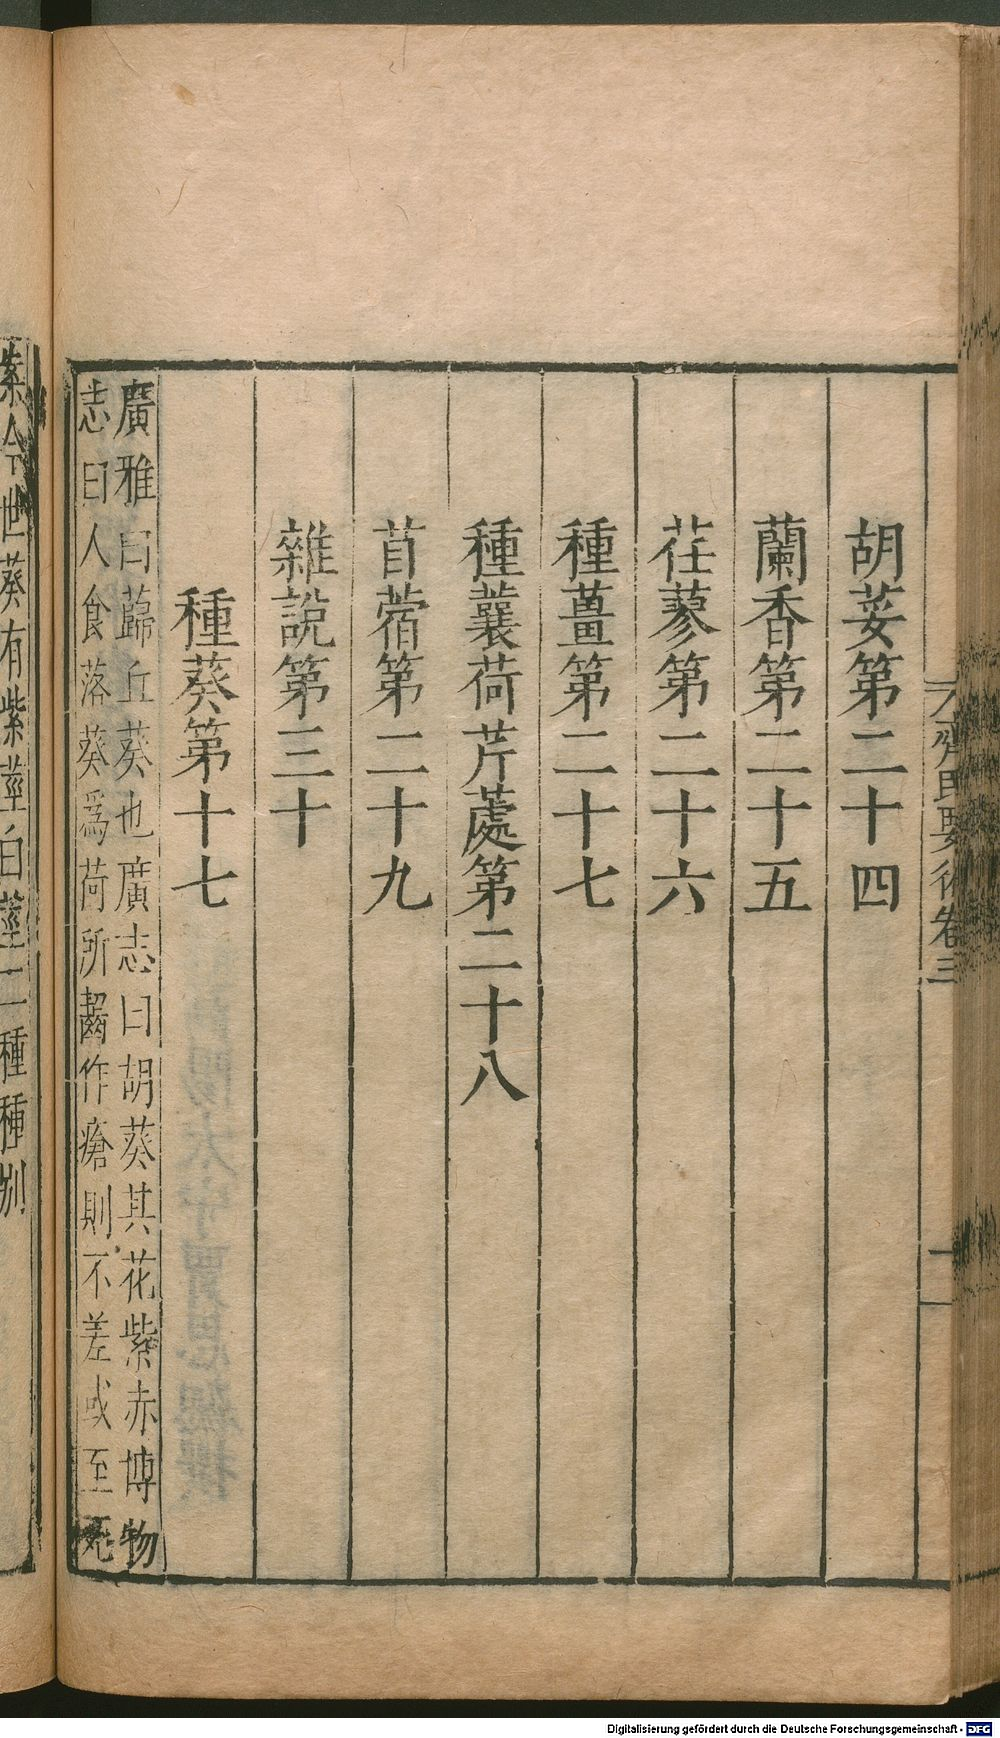 齊民要術卷三
胡荽第二十四
蘭香第二十五
荏蓼第二十六
種薑第二十七
種蘘荷芹𧆑第二十八
苜蓿第二十九
雜說第三十
種葵第十七
廣雅曰蘬丘葵也廣志曰胡葵其花紫赤博物
志曰人食落葵爲荷所齧作瘡則不差或至死
案今世葵有紫莖白莖二種種別
Digitalisierung gefördert durch die Deutsche Forschungsgemeinschaft - DFG